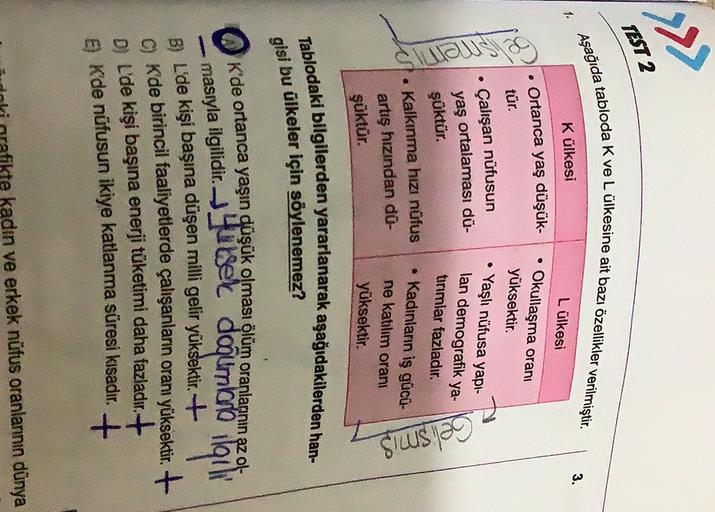 TEST 2
1. Aşağıda tabloda K ve L ülkesine ait bazı özellikler verilmiştir.
3.
K ülkesi
• Ortanca yaş düşük-
tür.
• Çalışan nüfusun
yaş ortalaması dü-
şüktür.
• Kalkınma hızı nüfus
artış hızından dü-
şüktür.
Gelişmemiş
L ülkesi
• Okullaşma oranı
yüksektir.
• Yaşlı nüfusa yapı-
lan demografik ya-
tırımlar fazladır.
• Kadınların iş gücü-
ne katılım oranı
yüksektir.
Gelişmiş
Tablodaki bilgilerden yararlanarak aşağıdakilerden han-
gisi bu ülkeler için söylenemez?
A) K'de ortanca yaşın düşük olması ölüm oranlarının az ol-
masıyla ilgilidir. → Yüksek doğumlarla ilgili
B) L'de kişi başına düşen milli gelir yüksektir. +
C) K'de birincil faaliyetlerde çalışanların oranı yüksektir. +
D) L'de kişi başına enerji tüketimi daha fazladır. +
E) K'de nüfusun ikiye katlanma süresi kısadır. +
grafikte kadın ve erkek nüfus oranlarının dünya